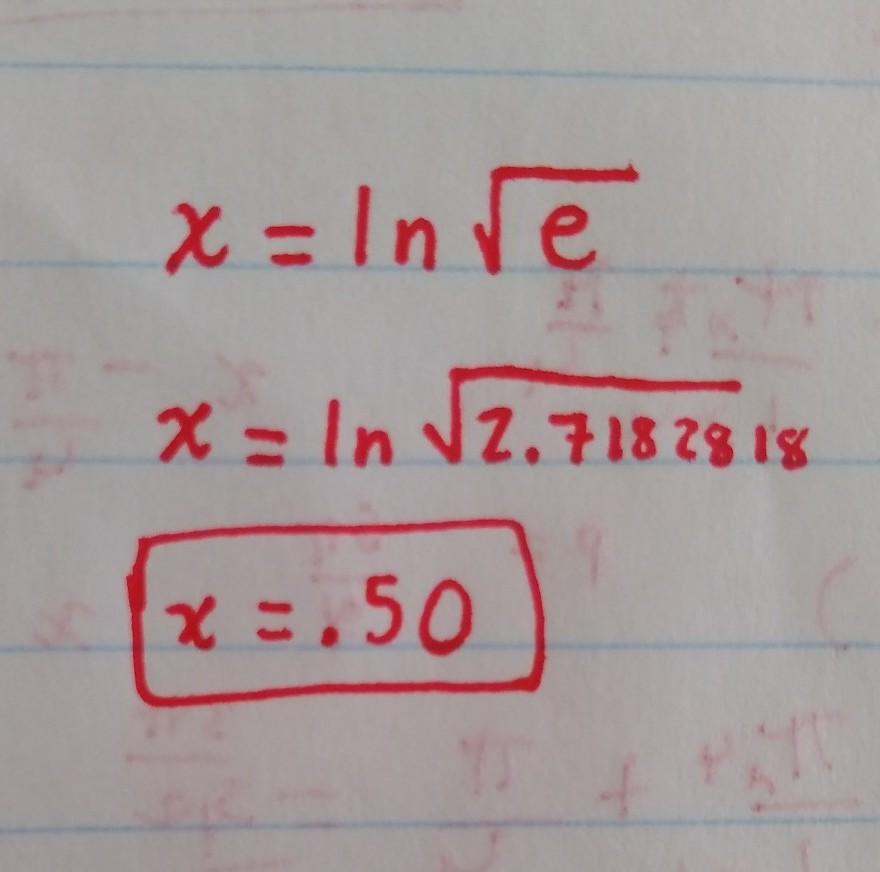 x = ln √e
x = ln √2.7182818
x = .50